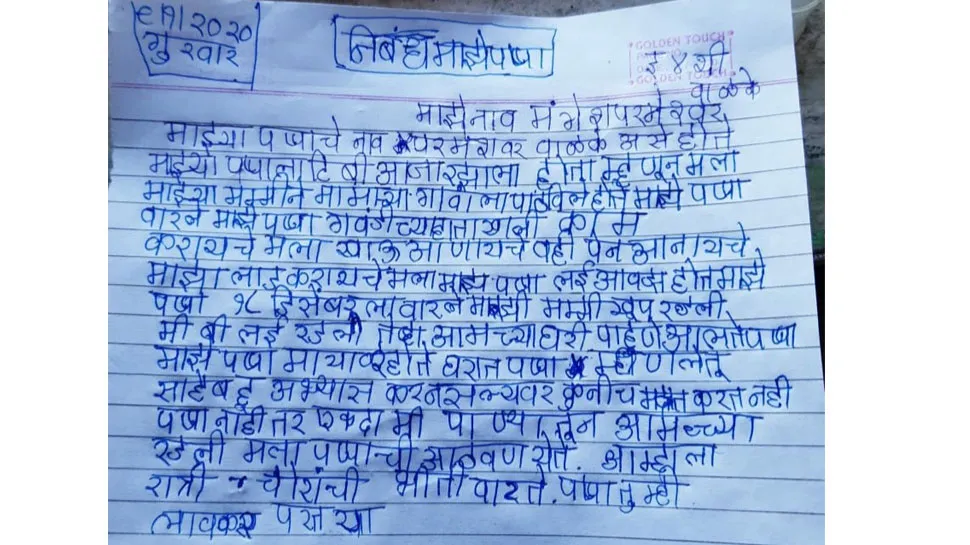 ८/१/२०२०
गुरुवार
निबंध माझे पप्पा
GOLDEN TOUCH
इ ४ थी
GOLDEN TOUCH
माझे नाव मंगेश परमेश्वर वाळके
माझ्या पप्पाचे नव परमेशवर वाळके असे होते
माझ्या पप्पाला टिबी आजार झाला होता म्हणून मला
माझ्या मम्मीने मामाच्या गावाला पाठविले होते माझे पप्पा
वारले माझे पप्पा गवंड्याच्या हाताखाली काम
करायचे मला खाऊ आणायचे वही पेन आनायचे
माझा लाड करायचे मला माझे पप्पा लई आवडत होते माझे
पप्पा १८ डिसेंबर ला वारले माझी मम्मी खूप रडली
मी बी लई रडलो तेव्हा आमच्या घरी पाहुणे आलते पप्पा
माझे पप्पा मायाळू होते घरात पप्पा म्हणले तू
साहेब हो अभ्यास कर नसल्यवर कुनीच मदत करत नही
पप्पा नाही तर एकदा मी पा आमच्या
रडली मला पप्पाची आठवण येते. आम्हाला
रात्री चोरांची भीती वाटते. पप्पा तुम्ही
लवकर परत या